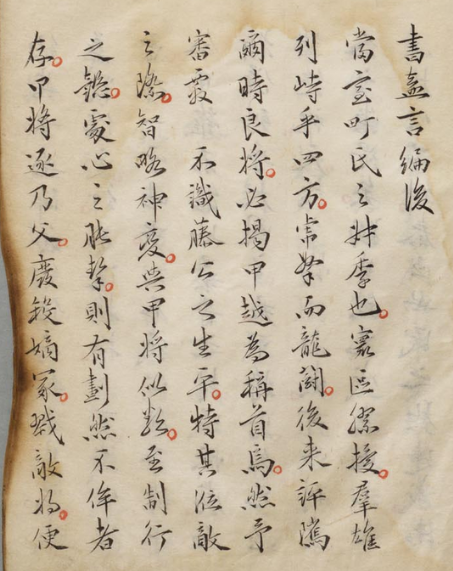 書盍言編後
當室町氏之叔季也寰區擾羣雄
列峙乎四方拏而龍鬭後来評隲
爾時良將必揭甲越為稱首焉然予
審覈不識藤公之生平特其涖敵
之際智略神變與甲將似至制行
之懿處心之肫摯則有劃然不侔者
存甲將逐乃父廢殺嫡冢戮敵将便